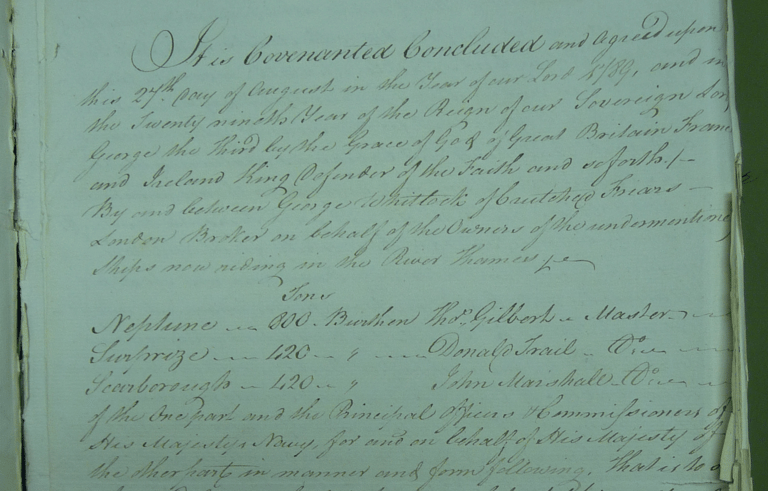 It is Covenanted Concluded and agreed upon
this 27th Day of August in the Year of our Lord 1789, and in
the Twenty nineth Year of the Reign of our Sovereign Lor
George the Third by the Grace of God of Great Britain Franc
and Ireland King Defender of the Faith and so forth /—
By and between George Whitlock of Crutched Friars —
London Broker on behalf of the Owners of the undermentioned
Ships now riding in the River Thames
Tons
Neptune 800 Burthen Thos. Gilbert Master
Surprize 420 " Donald Trail Do
Scarborough 420 " John Marshall Do
of the One part and the Principal Officers & Commissioners of
His Majesty's Navy, for and on behalf of His Majesty of
the other part, in manner and form following. That is to s